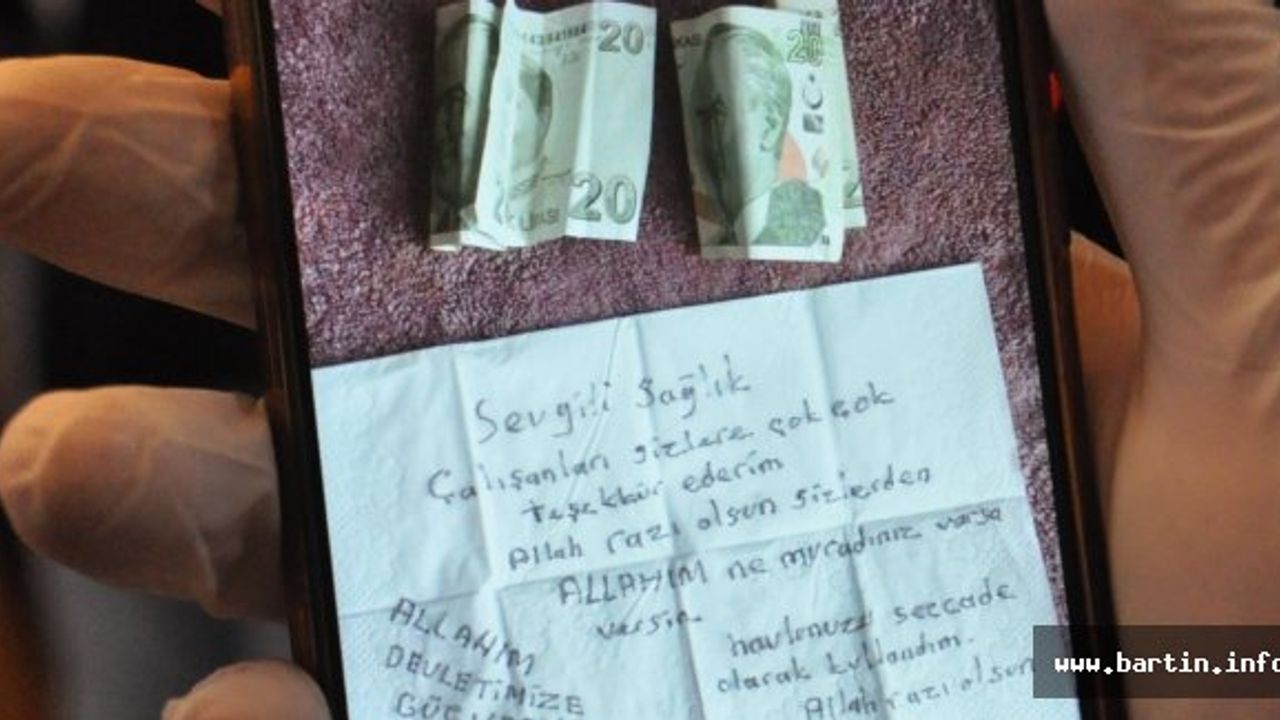 20
20
20
Sevgili Sağlık
Çalışanları sizlere çok çok
teşekkür ederim
Allah razı olsun sizlerden
ALLAHIM ne muradınız varsa
versin
havlunuzu seccade
olarak kullandım.
Allah razı olsun
ALLAHIM
DEVLETİMİZE
www.bartin.info